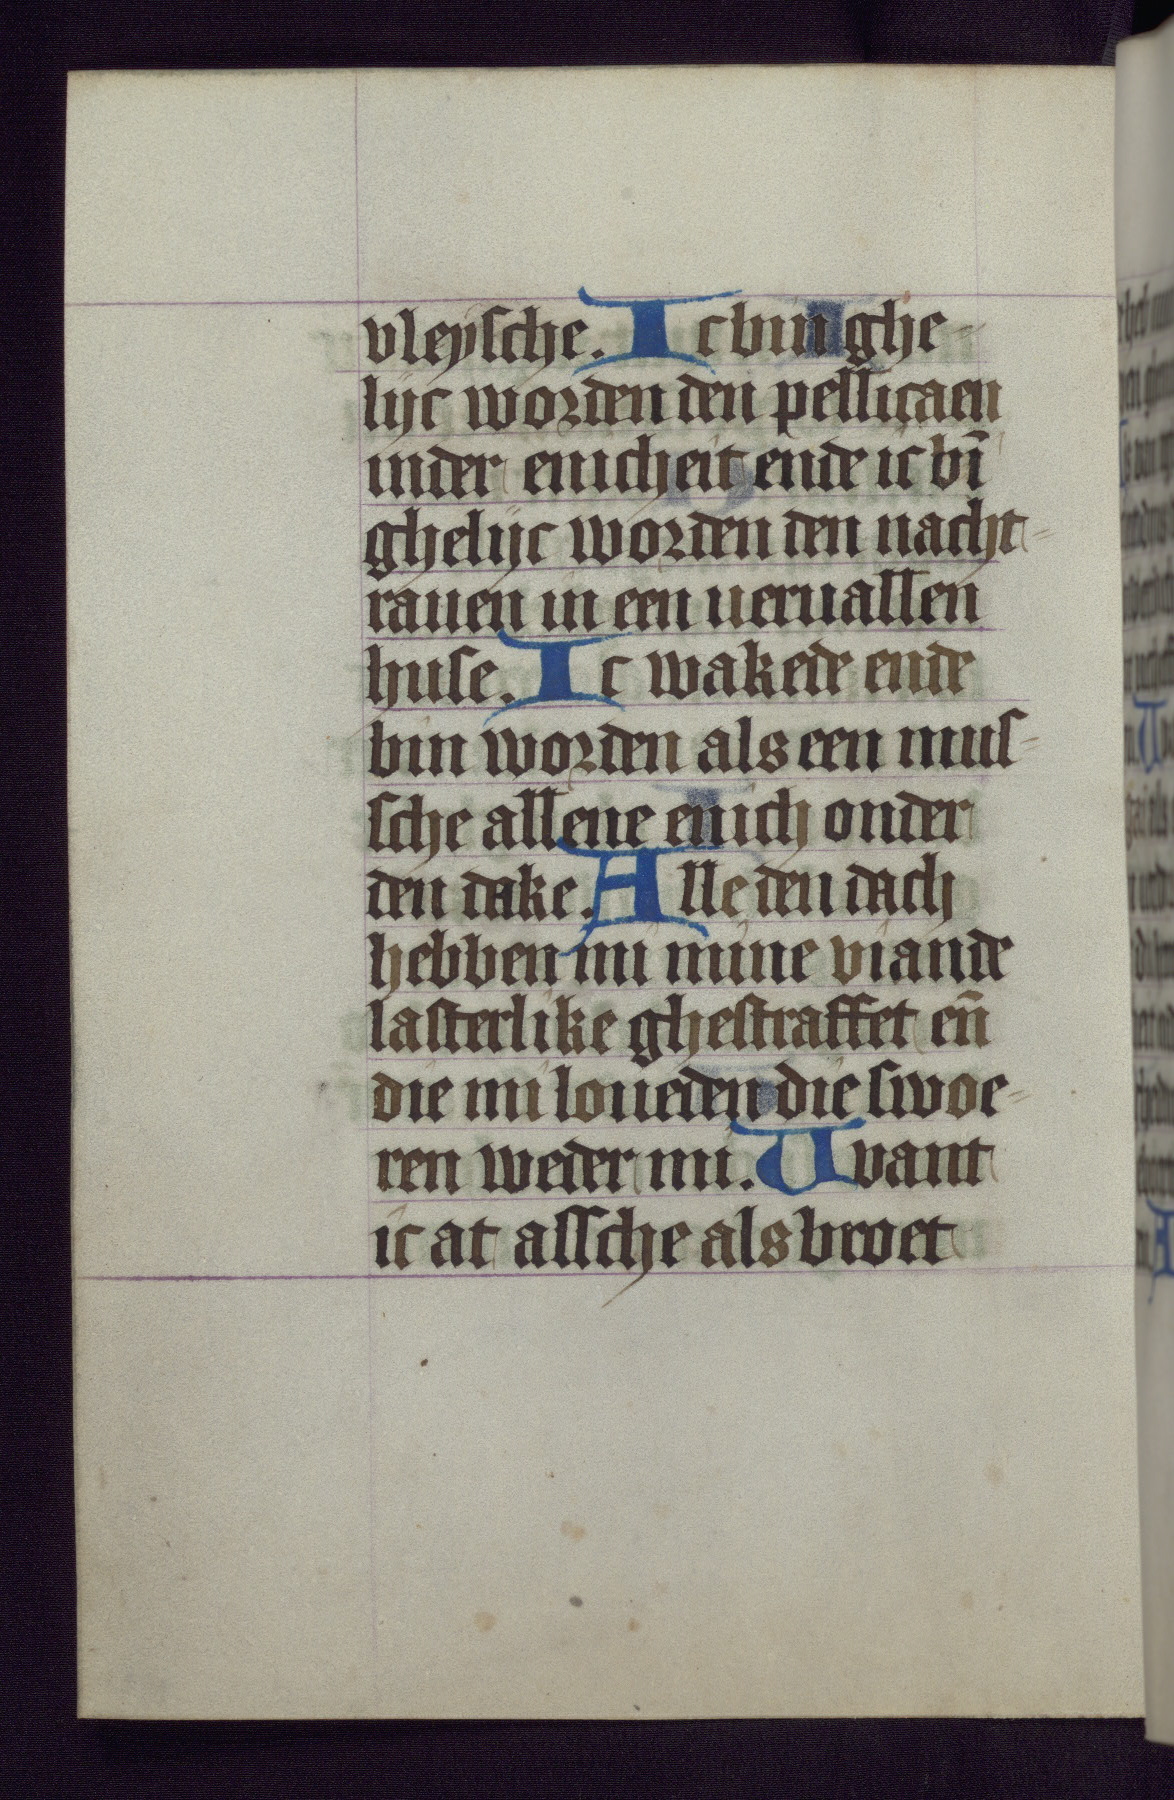 vleysche. Ic bin ghe-
lijc worden den pellicaen
inder enicheit ende ic bī
ghelijc worden den nacht-
rauen in een ueruallen
huse. Ic wakede ende
bin worden als een mus-
sche allene enich onder
den dake. Alle den dach
hebben mi mine viande
lasterlike ghestraffet en̄
die mi loueden die swoe-
ren weder mi. Want
ic at assche als broet